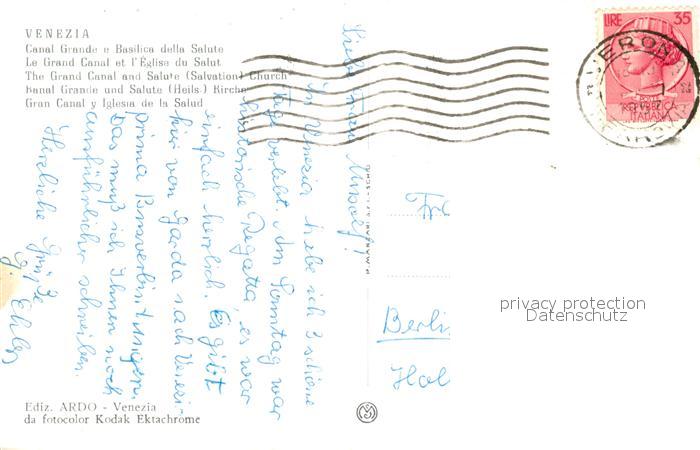 VENEZIA
Canal Grande e Basilica della Salute
Le Grand Canal et l'Église du Salut
The Grand Canal and Salute (Salvation) Church
Kanal Grande und Salute (Heils) Kirche
Gran Canal y Iglesia de la Salud
Liebe Frau
In Venezia habe ich 3 schöne
Tage verlebt. Am Sonntag war
historische Regatta, es war
einfach herrlich. Es gibt
hier von Garda nach Venezia
prima Busverbindungen.
Das muß ich Ihnen noch
ausführlicher schreiben.
Herzliche Grüße
Ediz. ARDO - Venezia
da fotocolor Kodak Ektachrome
P. MANZARI s.r.l. - SCHIO
LIRE 35
REPVBBLICA
ITALIANA
VERONA
Fra
Berli
Hol
privacy protection
Datenschutz